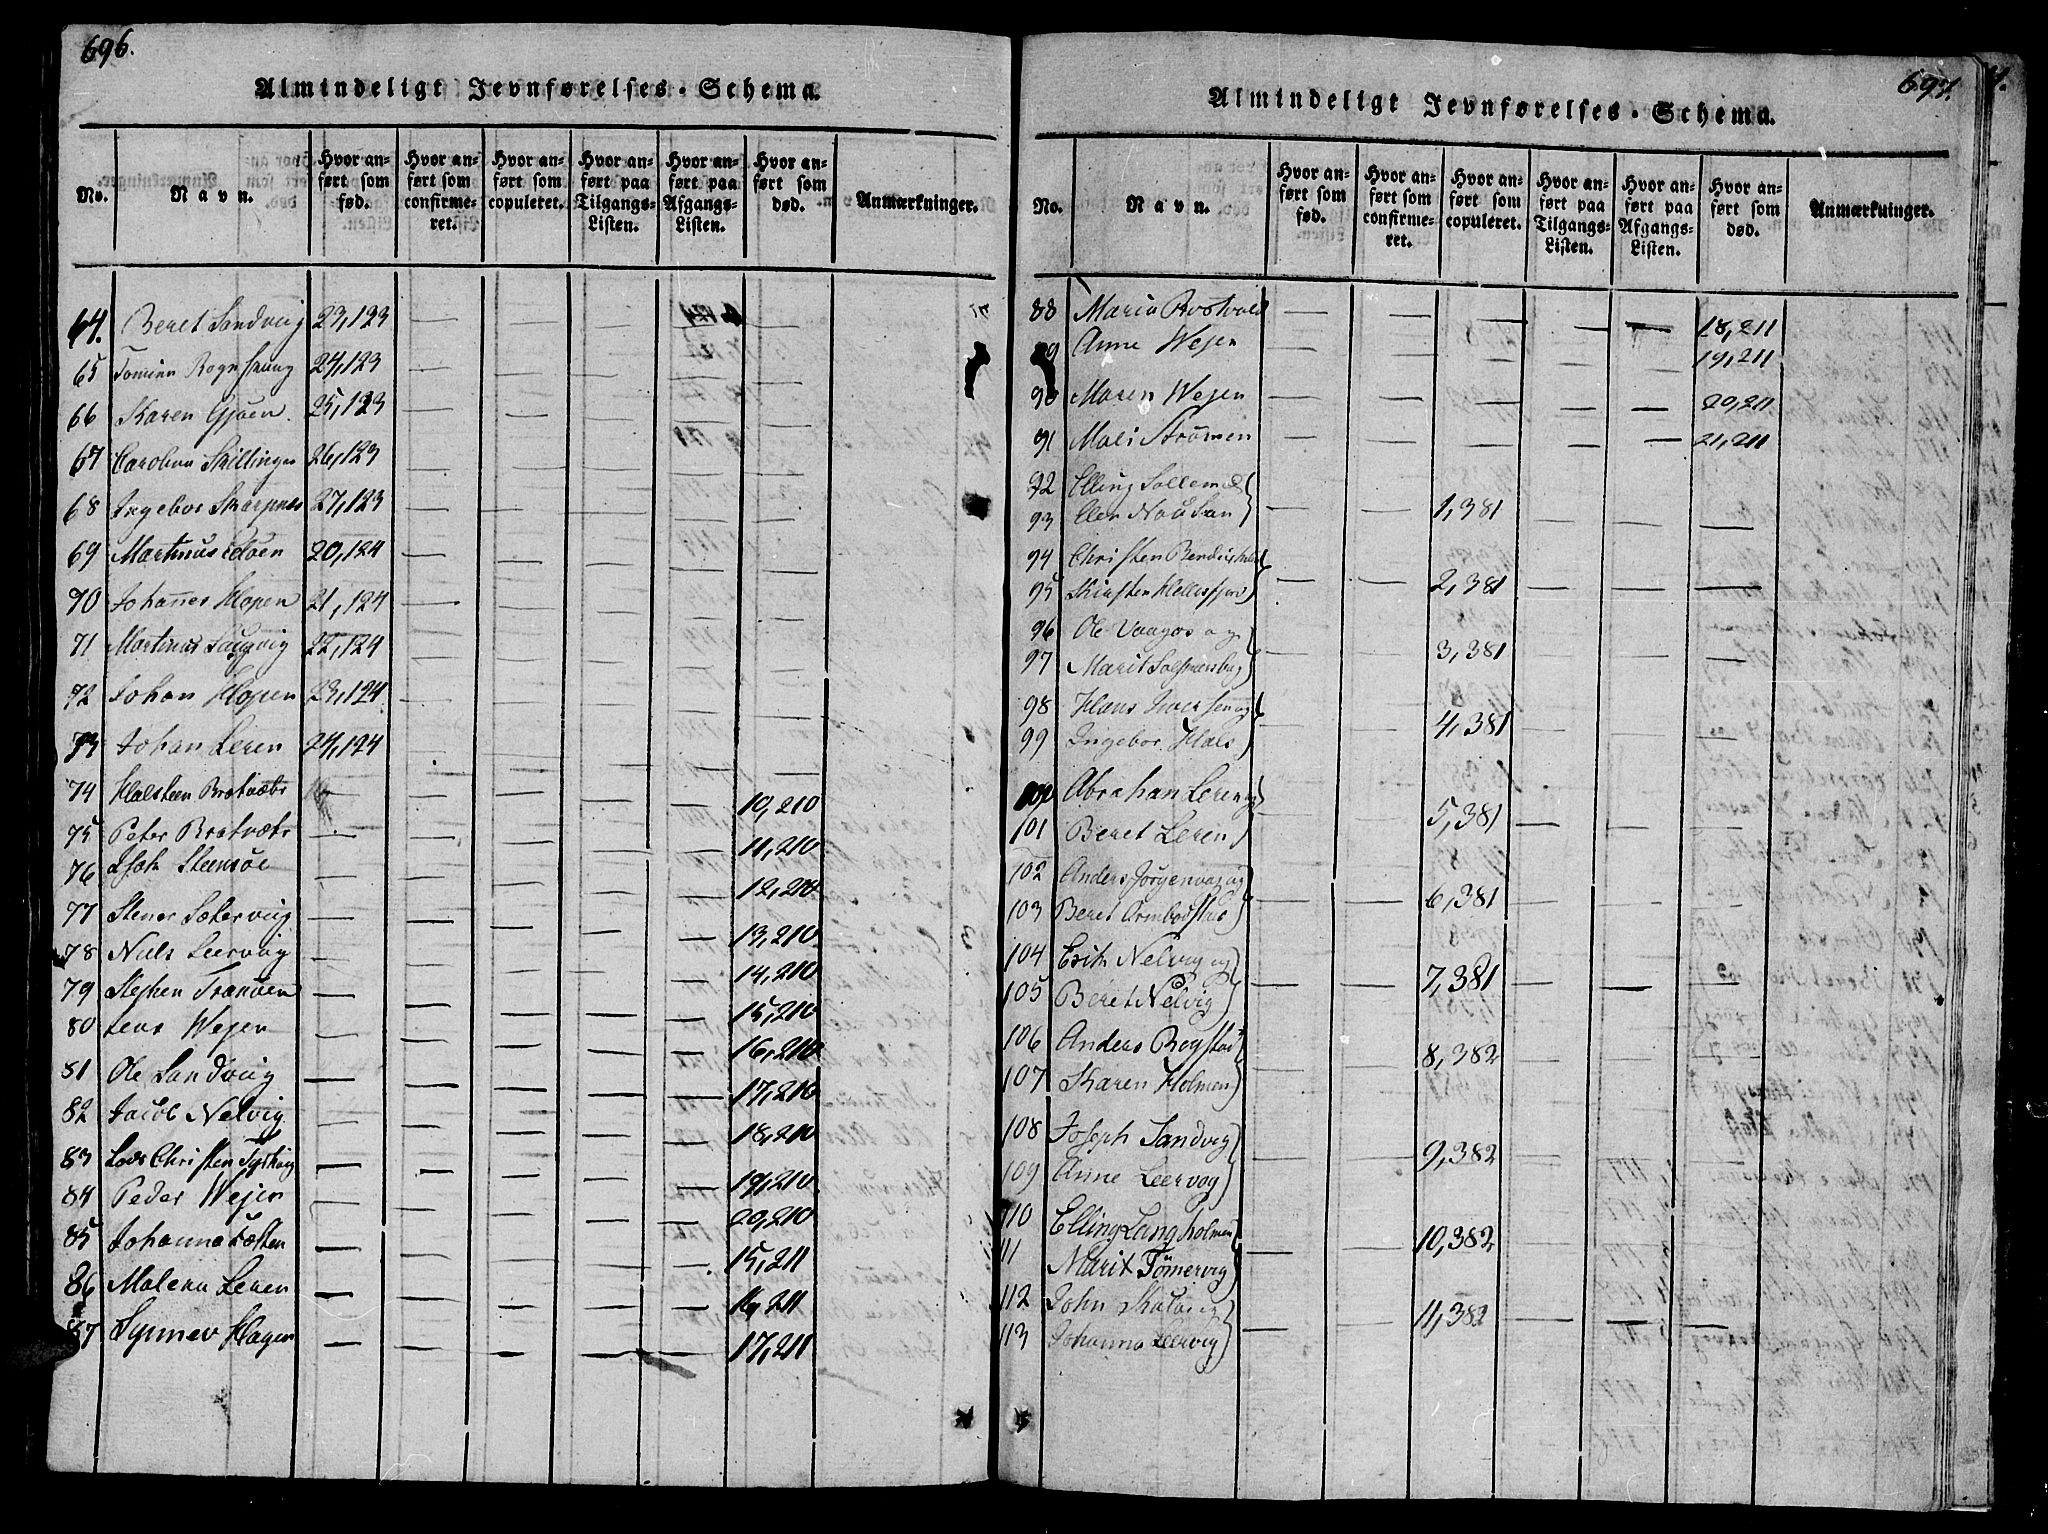 696.
Almindeligt Jevnførelses-Schema.
No. Navn. Hvor anført som fød. Hvor anført som confirmeret. Hvor anført som copuleret. Hvor anført paa Tilgangs-Listen. Hvor anført paa Afgangs-Listen. Hvor anført som død. Anmærkninger.
64. Beret Sandvig 23,123
65 24,123
66 Karen Gjøen 25,123
67 26,123
68 Ingebor Skarpnes 27,123
69 Martinus 20,124
70 Johannes Hopen 21,124
71 Martinus 22,124
72 Johan Hopen 23,124
73 Johan Leren 24,124
74 Halsteen Brotvæts 10,210
75 Peter Brotvæts 11,210
76 Steensøe 12,210
77 Stener Sætervig 13,210
78 Niels Leervig 14,210
79 Stephen 15,210
80 Jens Wejen 16,210
81 Ole Sandvig 17,210
82 Jacob Nelvig 18,210
83 Christen 19,210
84 Peder Wejen 20,210
85 Johanna 15,211
86 Malena Leren 16,211
87 Synnev Hagen 17,211
697.
Almindeligt Jevnførelses-Schema.
No. Navn. Hvor anført som fød. Hvor anført som confirmeret. Hvor anført som copuleret. Hvor anført paa Tilgangs-Listen. Hvor anført paa Afgangs-Listen. Hvor anført som død. Anmærkninger.
88 Maria 18,211
Anne Wejen 19,211
90 Maren Wejen 20,211
91 Mali Strømen 21,211
92 Elling
93 1,381
94 Christen
95 Kirsten 2,381
96 Ole Vaagos og
97 Marit 3,381
98 Hans Iversen og
99 Ingebor Hals 4,381
Abraham Leren og
101 Beret Leren 5,381
102 Anders Jørgenvag og
103 Beret 6,381
104 Erik Nelvig og
105 Beret Nelvig 7,381
106 Anders Rogstad
107 Karen Holmen 8,382
108 Joseph Sandvig
109 Anne Leervog 9,382
110 Elling Langholmen
111 Marit Tömervig 10,382
112 John
113 Johanna Leervig 11,382